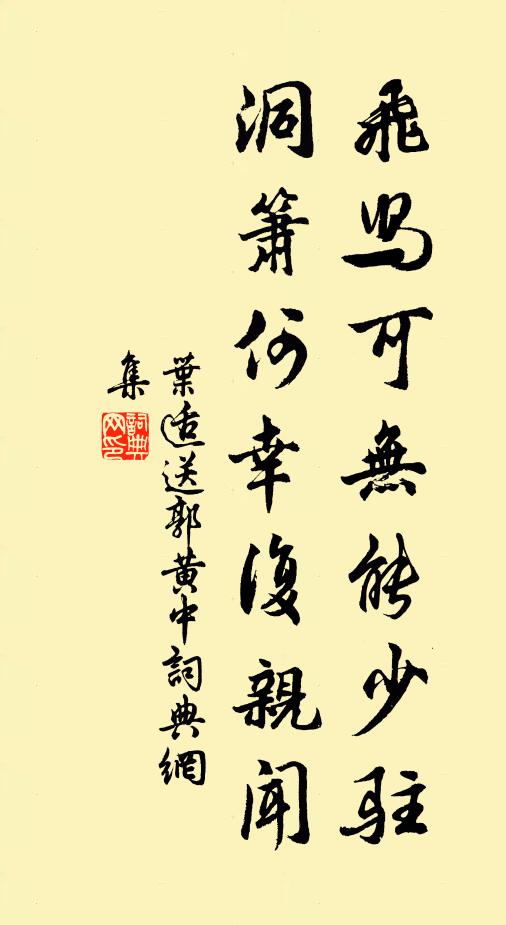 飛舄可無能少駐
洞簫何幸復親聞
葉適送郭黃中詞典網
集
詞典网印